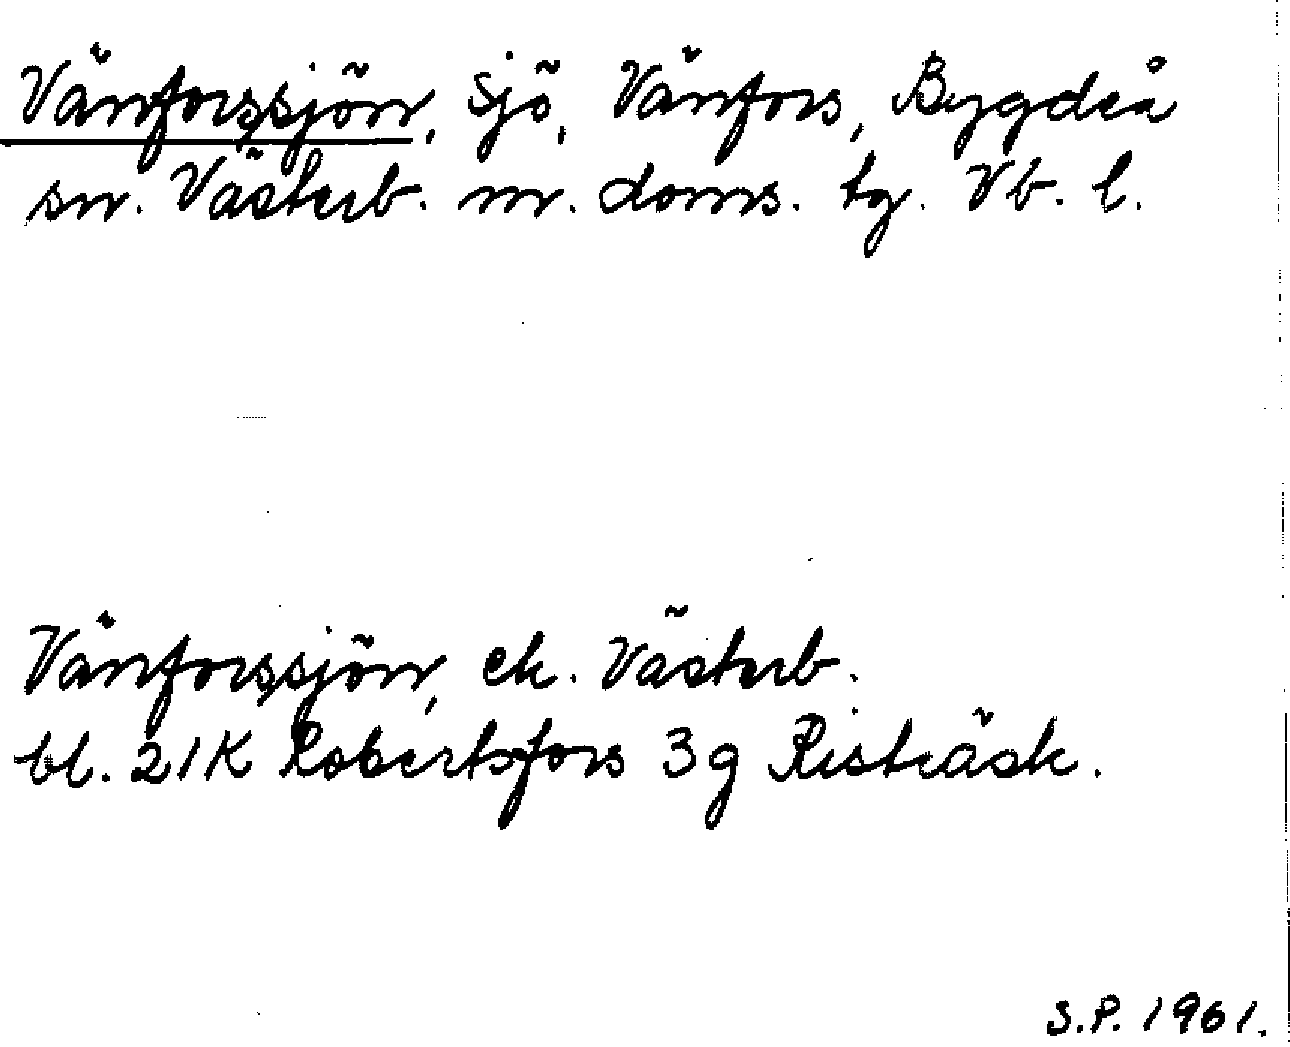 Vänforssjön, sjö, Vänfors, Bygdeå
sn. Västerb. m. doms. tg. Vb. l.
Vänforssjön, ek. Västerb.
bl. 21K Robertsfors 3g Risträsk.
S.P. 1961.